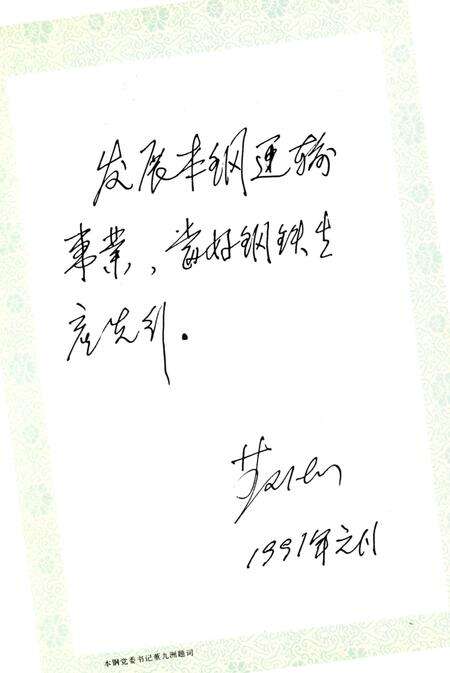 发展本钢运输
事業、当好钢铁生
产先行。
董九洲
1991年元月
本钢党委书记董九洲题词